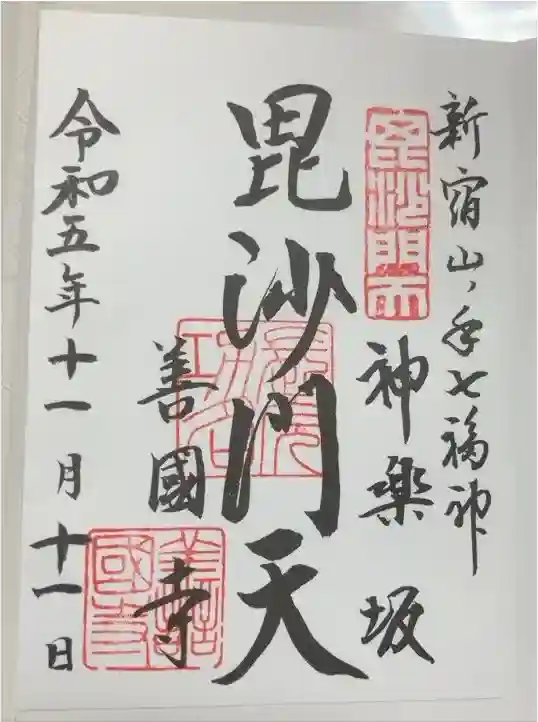 新宿山ノ手七福神
毘沙門天
神楽坂
毘沙門天
善國寺
善國寺
令和五年十一月十一日